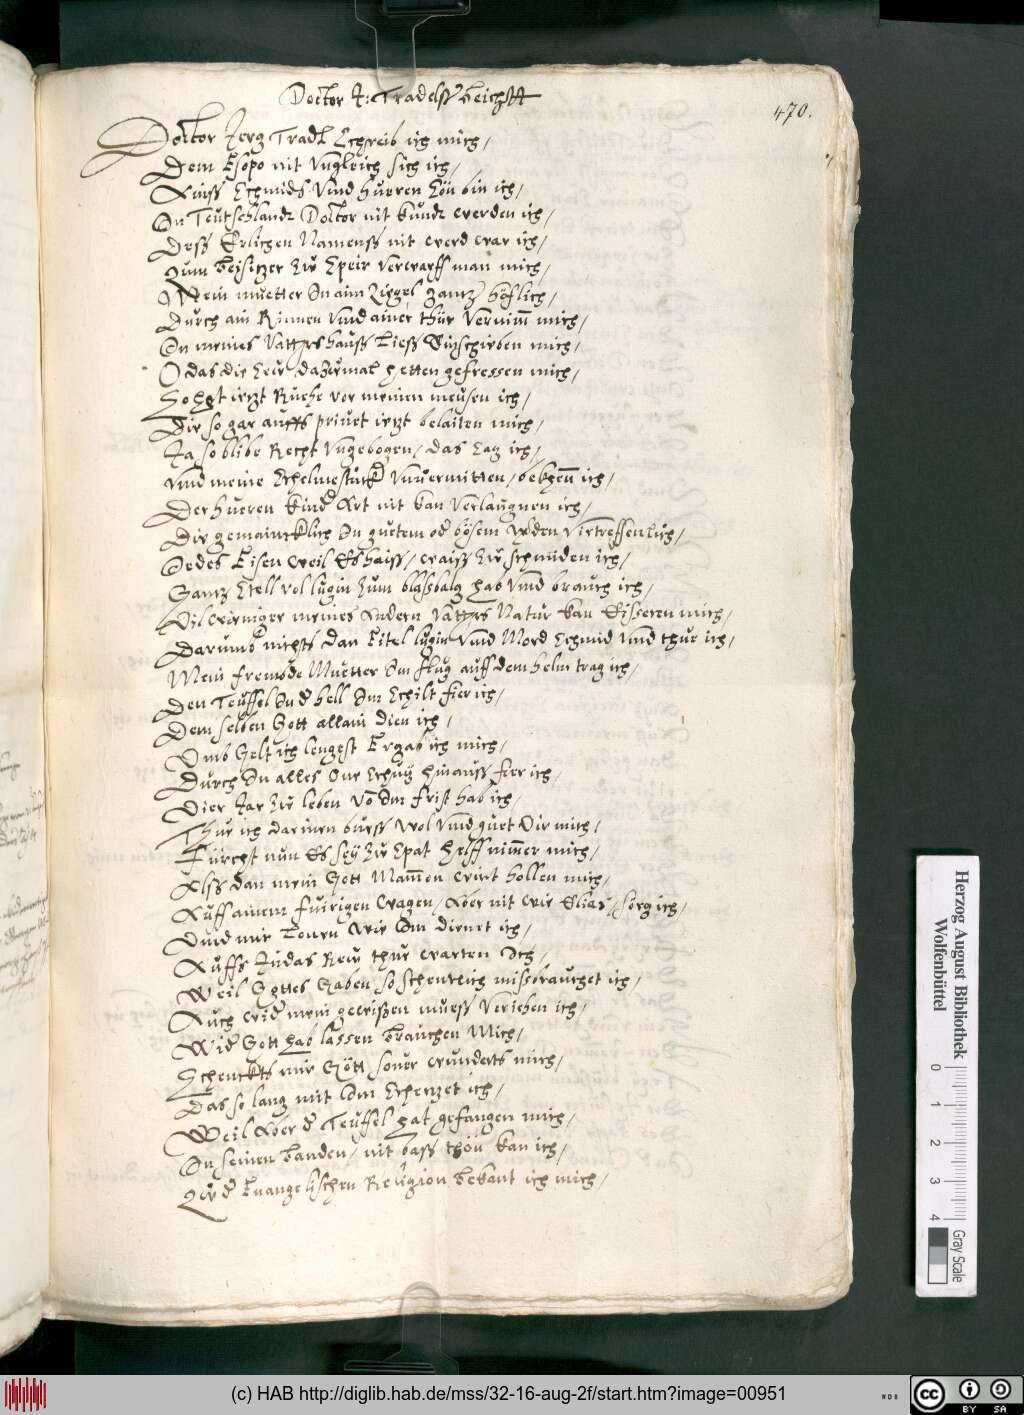 Doctor J: Tradelß beicht
470.
Doctor Jerg Tradl Schreib ich mich,
Dem Esopo nit Vngleich sich ich,
Aniß Schmids Vnd hueren Sön bin ich,
In Teutschlandt Doctor nit kundt werden ich,
Deß Erlichen Namenß nit werd war ich,
Zum beisitzer Zu Speir Verwarff man mich,
Mein muetter In aim Ziegel gantz höflich,
Durch ain Rinnen Vnd ainer thür Vernimm mich,
In meines Vatters hauß ließ einschieben mich,
O das die Sew dazumal hetten gefressen mich,
So het ietzt Ruehe vor meinen meusen ich,
Die so gar auffs priuet ietzt belaiten mich,
Ja so blibe Recht Vngebogen, das Sag ich,
Vnd meine Schelmestuckh Vnuermitten, bekhenn ich,
Der hueren kind Art nit kan Verlaugnen ich,
Die gemaincklich In guetem od bösem werden Virtreffenlich,
Iedes Eisen weil Es haiß, waiß Zu schmiden ich,
Gantz Stell vol lugin Zum blaßbalg hab Vnd brauch ich,
Vil weiniger meines Andern Vatters Natur kan Eisseren mich,
Darumb nichts dan Eitel lugin Vnd Mord Schmid Vnd thue ich,
Mein frembde Muetter Im flug auff dem helm trag ich,
Den Teuffel In d hell Im Schilt fier ich,
Dem selben Gott allain dien ich,
Vmb Gelt ich lengest Ergab ich mich,
Durch In alles One Schuch hinauß fier ich,
Vier Jar Zu leben Von Im frist hab ich,
Thue ich darinen buess wol Vnd guet Vir mich,
Fürcht nun Es sey Zu Spat helff nimmer mich,
Alß dan mein Gott Mammon wirt hollen mich,
Auff ainem fuirigen wagen, Aber nit wie Elias, sorg ich,
Vnd mir Lonen wie Im dienet ich,
Auffs Judas Rew thue warten Ich,
Weil Gottes Gaben so schentlich missbrauchet ich,
Auch wid mein gewißen mueß Veriehen ich,
Wid Gott hab lassen brauchen Mich,
Schenckts mir Gött souer wunderts mich,
Das so lang mit Im Schertzet ich,
Weil Aber d Teuffel hat gefangen mich,
In seinen banden, nit baß thon kan ich,
Zu d Euangelischen Religion bekant ich mich,
Herzog August Bibliothek
Wolfenbüttel
0 1 2 3 4
Gray Scale
(c) HAB http://diglib.hab.de/mss/32-16-aug-2f/start.htm?image=00951
WDB
cc BY SA